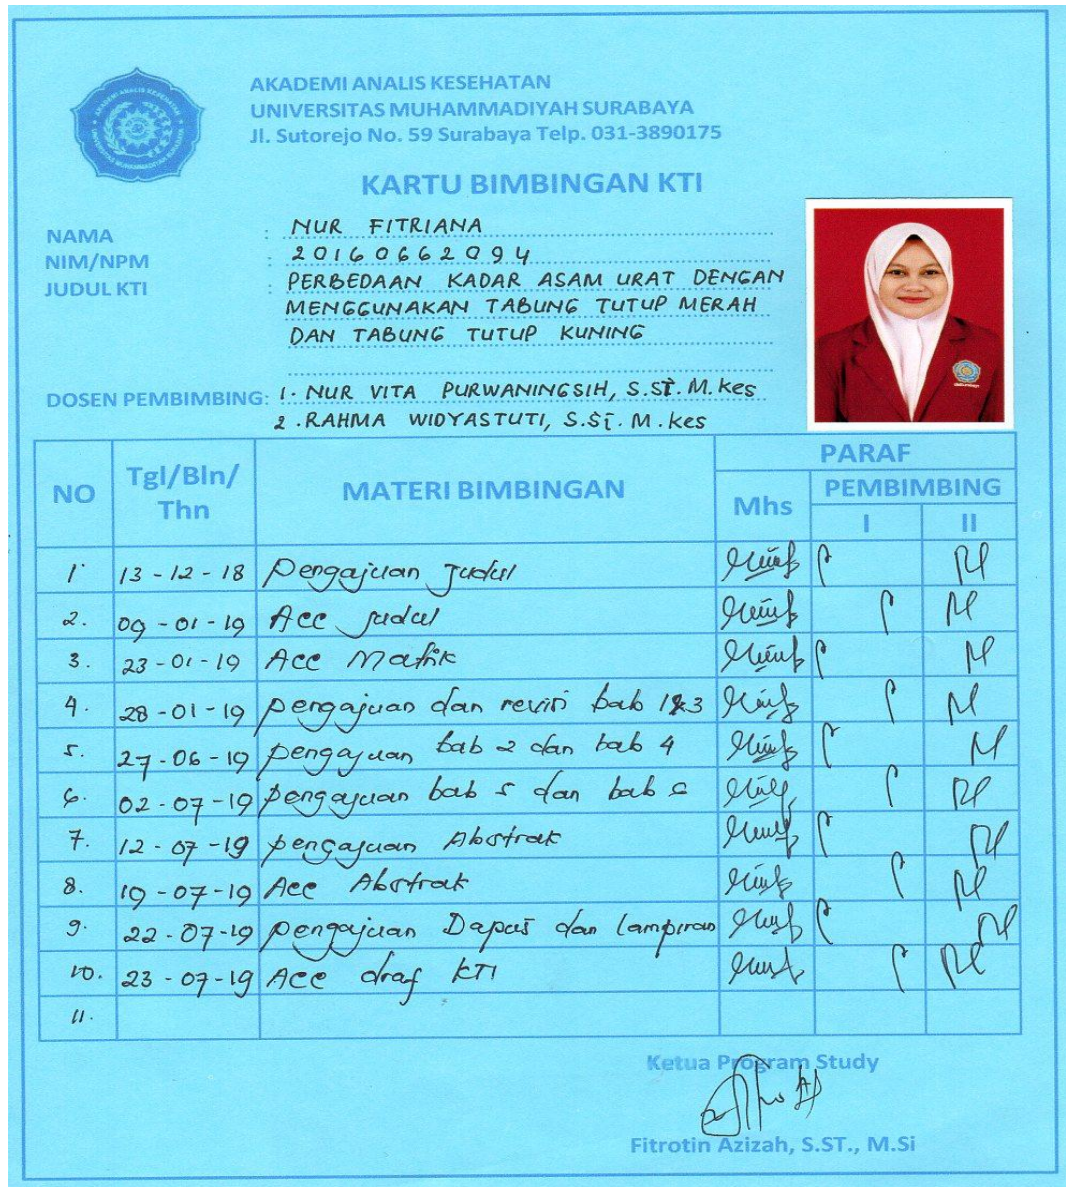 AKADEMI ANALIS KESEHATAN
UNIVERSITAS MUHAMMADIYAH SURABAYA
Jl. Sutorejo No. 59 Surabaya Telp. 031-3890175
KARTU BIMBINGAN KTI
NAMA : NUR FITRIANA
NIM/NPM : 20160662094
JUDUL KTI : PERBEDAAN KADAR ASAM URAT DENGAN
MENGGUNAKAN TABUNG TUTUP MERAH
DAN TABUNG TUTUP KUNING
DOSEN PEMBIMBING: 1. NUR VITA PURWANINGSIH, S.ST. M.kes
2. RAHMA WIDYASTUTI, S.Si. M.kes
NO Tgl/Bln/Thn MATERI BIMBINGAN PARAF
Mhs PEMBIMBING
I II
1 13-12-18 Pengajuan Judul
2. 09-01-19 Acc judul
3. 23-01-19 Acc Matrik
4. 28-01-19 pengajuan dan revisi bab 1&3
5. 27-06-19 pengajuan bab 2 dan bab 4
6. 02-07-19 pengajuan bab 5 dan bab 6
7. 12-07-19 pengajuan Abstrak
8. 19-07-19 Acc Abstrak
9. 22-07-19 pengajuan Dapus dan lampiran
10. 23-07-19 Acc draf KTI
11.
Ketua Program Study
Fitrotin Azizah, S.ST., M.Si